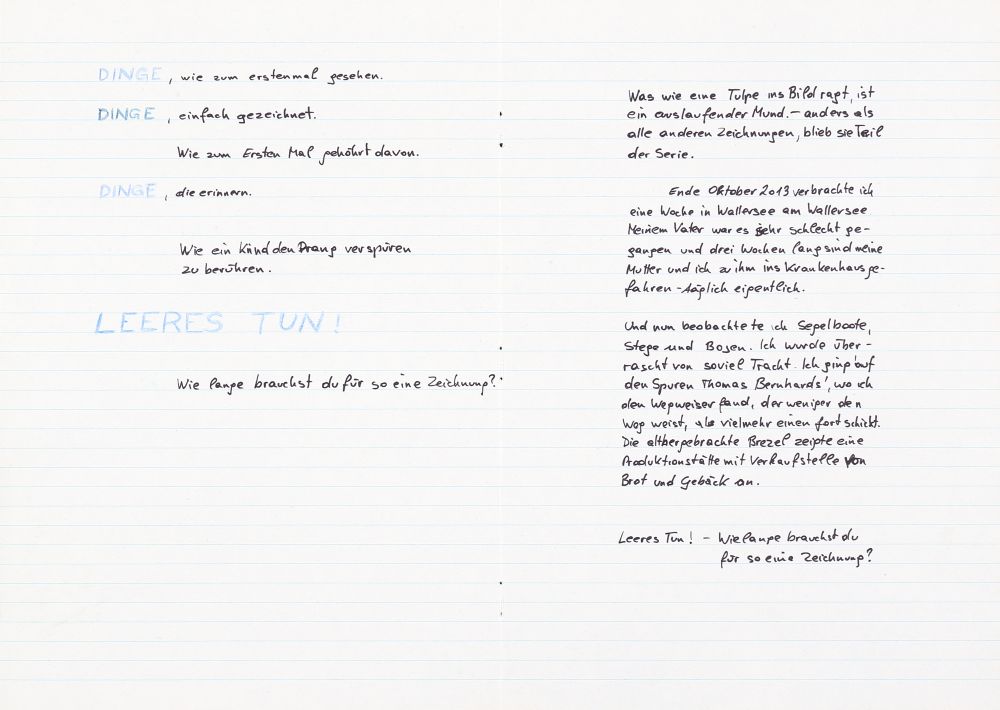 DINGE, wie zum erstenmal gesehen.
DINGE, einfach gezeichnet.
Wie zum Ersten Mal gehöhrt davon.
DINGE, die erinnern.
Wie ein Kind den Drang verspüren
zu berühren.
LEERES TUN!
Wie lange brauchst du für so eine Zeichnung?
Was wie eine Tulpe ins Bild ragt, ist
ein auslaufender Mund. – anders als
alle anderen Zeichnungen, blieb sie Teil
der Serie.
Ende Oktober 2013 verbrachte ich
eine Woche in Wallersee am Wallersee
Meinem Vater war es sehr schlecht ge-
gangen und drei Wochen lang sind meine
Mutter und ich zu ihm ins Krankenhaus ge-
fahren - täglich eigentlich.
Und nun beobachtete ich Segelboote,
Stege und Bojen. Ich wurde über-
rascht von soviel Tracht. Ich ging 'auf
den Spuren Thomas Bernhards', wo ich
den Wegweiser fand, der weniger den
Weg weist, als vielmehr einen fort schickt.
Die althergebrachte Brezel zeigte eine
Produktionstätte mit Verkaufstelle von
Brot und Gebäck an.
Leeres Tun! – Wie lange brauchst du
für so eine Zeichnung?